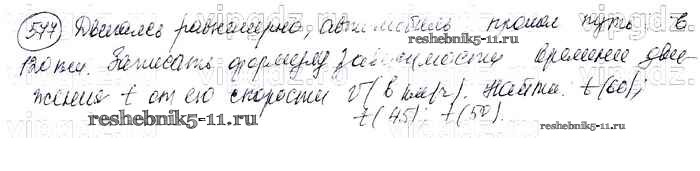 577 Двигаясь равномерно, автомобиль прошел путь в
120 км. Записать формулу зависимости времени дви-
жения t от его скорости v (в км/ч). Найти: t(60);
t(45); t(50).
reshebnik5-11.ru
reshebnik5-11.ru
reshebnik5-11.ru